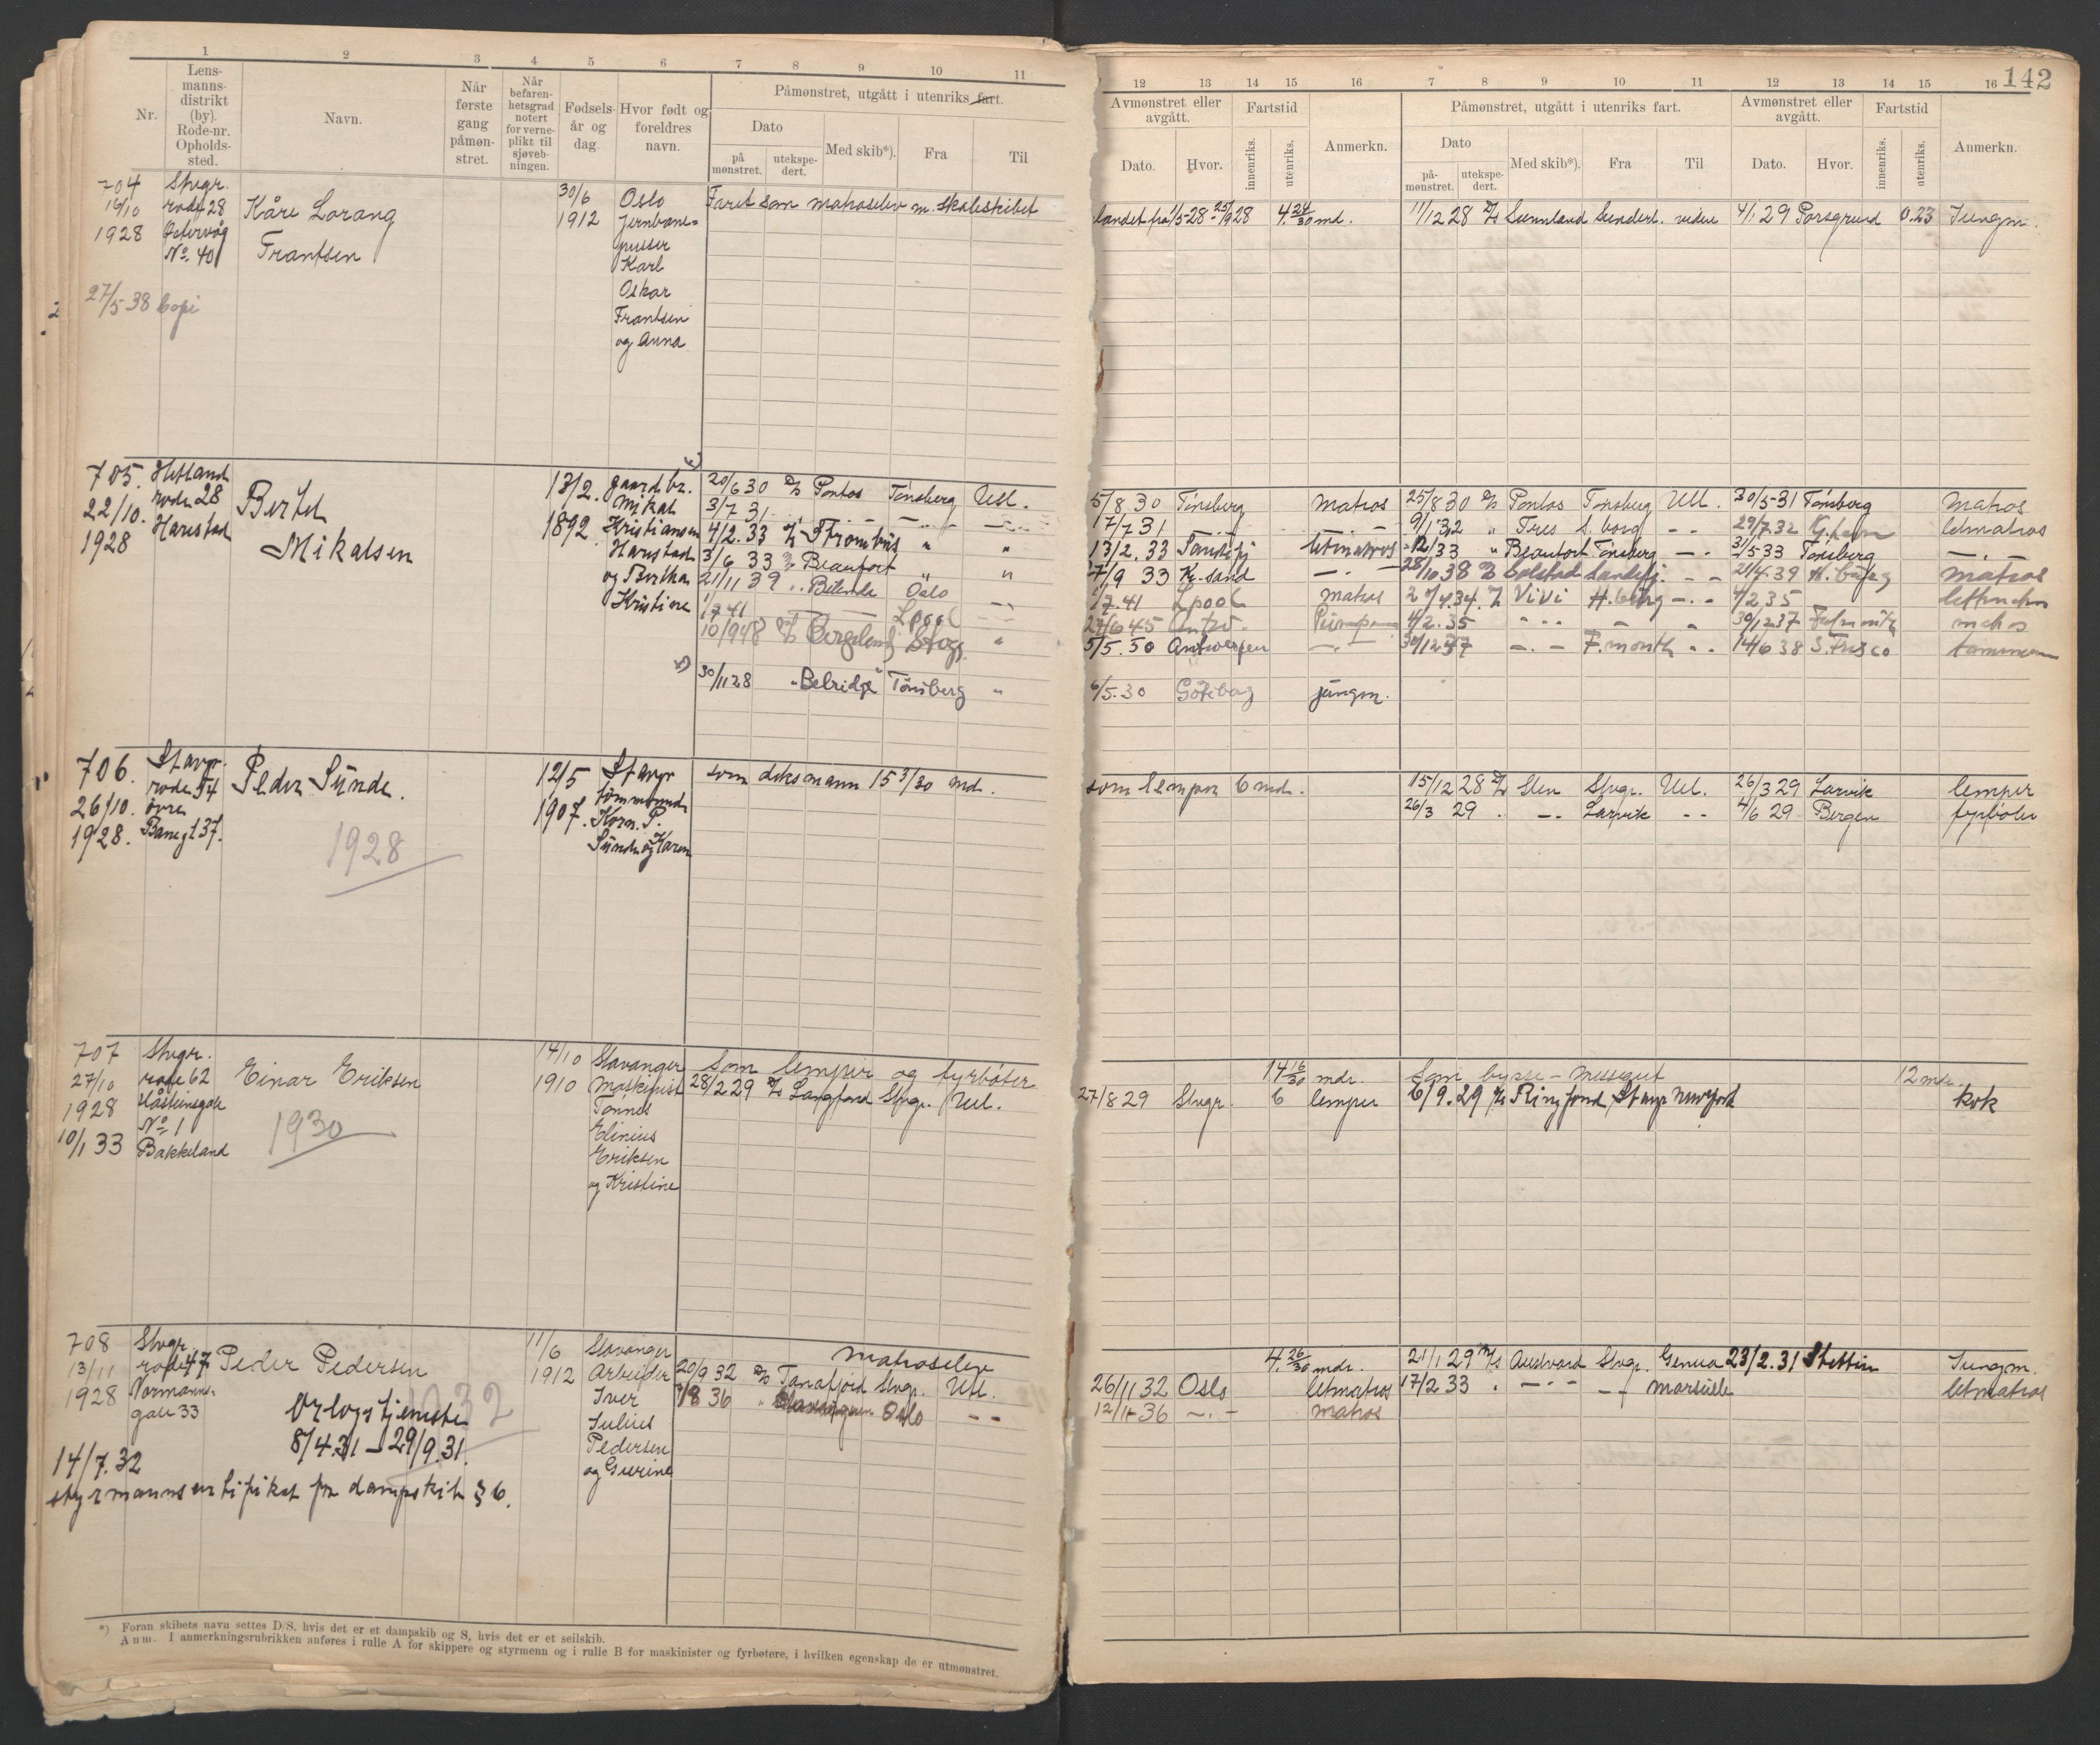 142
1 2 3 4 5 6 7 8 9 10 11
Nr.
Lens-
manns-
distrikt
(by).
Rode-nr.
Opholds-
sted.
Navn.
Når
første
gang
påmøn-
stret.
Når
befaren-
hetsgrad
notert
for verne-
plikt til
sjøveb-
ningen.
Fødsels-
år og
dag.
Hvor født og
foreldres
navn.
Påmønstret, utgått i utenriks fart.
Dato
på
mønstret.
utekspe-
dert.
Med skib*).
Fra
Til
12 13 14 15 16 7 8 9 10 11 12 13 14 15 16
Avmønstret eller
avgått.
Dato.
Hvor.
Fartstid
innenriks.
utenriks.
Anmerkn.
Påmønstret, utgått i utenriks fart.
Dato
på-
mønstret.
utekspe-
dert.
Med skib*).
Fra
Til
Avmønstret eller
avgått.
Dato.
Hvor.
Fartstid
innenriks.
utenriks.
Anmerkn.
704
16/10
1928
Stvgr.
rode 28
No. 40
27/5-38 Copi
Kåre Lorang
Frantsen
30/6
1912
Oslo
Jernbane-
pusser
Karl
Oskar
Frantsen
og Anna
Faret som matroselev m. skoleskibet
landet fra 1/5-28 - 25/9 28 4 24/30 md.
11/12 28 D/S Sunnland Sunderl. videre 4/1 29 Porsgrund 0.23 Jungm.
705.
22/10.
1928
Hetland
rode 28
Harestad
Bertel
Mikalsen
13/2.
1892.
gaardbr.
Mikal
Kristiansen
Harestad
og Bertha
Kristine
20/6 30 D/S Pontos Tønsberg Utl.
3/7 31
4/2. 33 Strombus " "
3/6 33 Beaufort " "
21/11 39 Oslo
1/7 41 Lpool
10/9 48
30/11 28 "Belridge" Tønsberg "
5/8 30 Tønsberg matros
17/7 31
13/2. 33 Sandefj letmatros
27/9 33 Kr.sand
1/7. 41 Lpool matros
27/6 45 Antw.
5/5. 50 Antwerpen
6/5. 30 Göteborg jungm.
25/8 30 D/S Pontos Tønsberg Utl. 30/5-31 Tønsberg matros
9/1 32 " Tres S. borg 29/7. 32 letmatros
12/33 " Beaufort Tønsberg 31/5 33 Tønsberg
28/10 38 Solstad Sandefj. 21/4. 39 matros
27/4. 34. Vivi H. burg 4/2 35
4/2. 35 30/12 37
30/12 37 F. month 14/6 38 S. Frisco
706.
26/10.
1928.
Stavgr.
rode 54
øvre
Baneg 137.
Peder Sunde.
1928
12/5
1907.
Stavgr
tømmermd.
Korn. P.
Sunde og Karen
som deksmann 15 3/30 md.
som lemper 6 md.
15/12 28 D/S Sten Stvgr. Utl. 26/3 29 Larvik lemper
26/3 29 Larvik 4/6 29 Bergen fyrbøter
707
27/10
1928
10/1 33
Stvgr.
rode 62
Håsteinsgate
No. 1
Bakkeland
Einar Eriksen
1930
14/10
1910
Stavanger
Maskinist
Tønnes
Elinius
Eriksen
og Kristine
Som lemper og fyrbøter
28/2 29 D/S Langfond Stvgr. Utl.
14 16/30 mdr.
27/8 29 Stvgr. 6 lemper
Som bysse - messegut 12 mdr.
6/9. 29 D/S Ringfond Stavgr kok
708
13/11
1928
Stvgr.
rode 47
Normanns-
gate 33
Peder Pedersen
1932
Orlogstjeneste
8/4.31 - 29/9.31.
14/7.32
styrmannssertifikat for dampskib § 6.
11/6
1912
Stavanger
Arbeider
Iver
Julius
Pedersen
og Gurine
matroselev
20/9 32 D/S Tanafjord Stvgr. Utl.
7/8 36 Oslo
4 26/30 mdr.
26/11 32 Oslo letmatros
12/11-36 matros
21/1 29 M/S Austvard Stvgr. Genua 23/2. 31 Stettin Jungm.
17/2 33 Marseille letmatros
*) Foran skibets navn settes D/S, hvis det er et dampskib og S, hvis det er et seilskib.
Anm. I anmerkningsrubrikken anføres i rulle A for skippere og styrmenn og i rulle B for maskinister og fyrbøtere, i hvilken egenskap de er utmønstret.